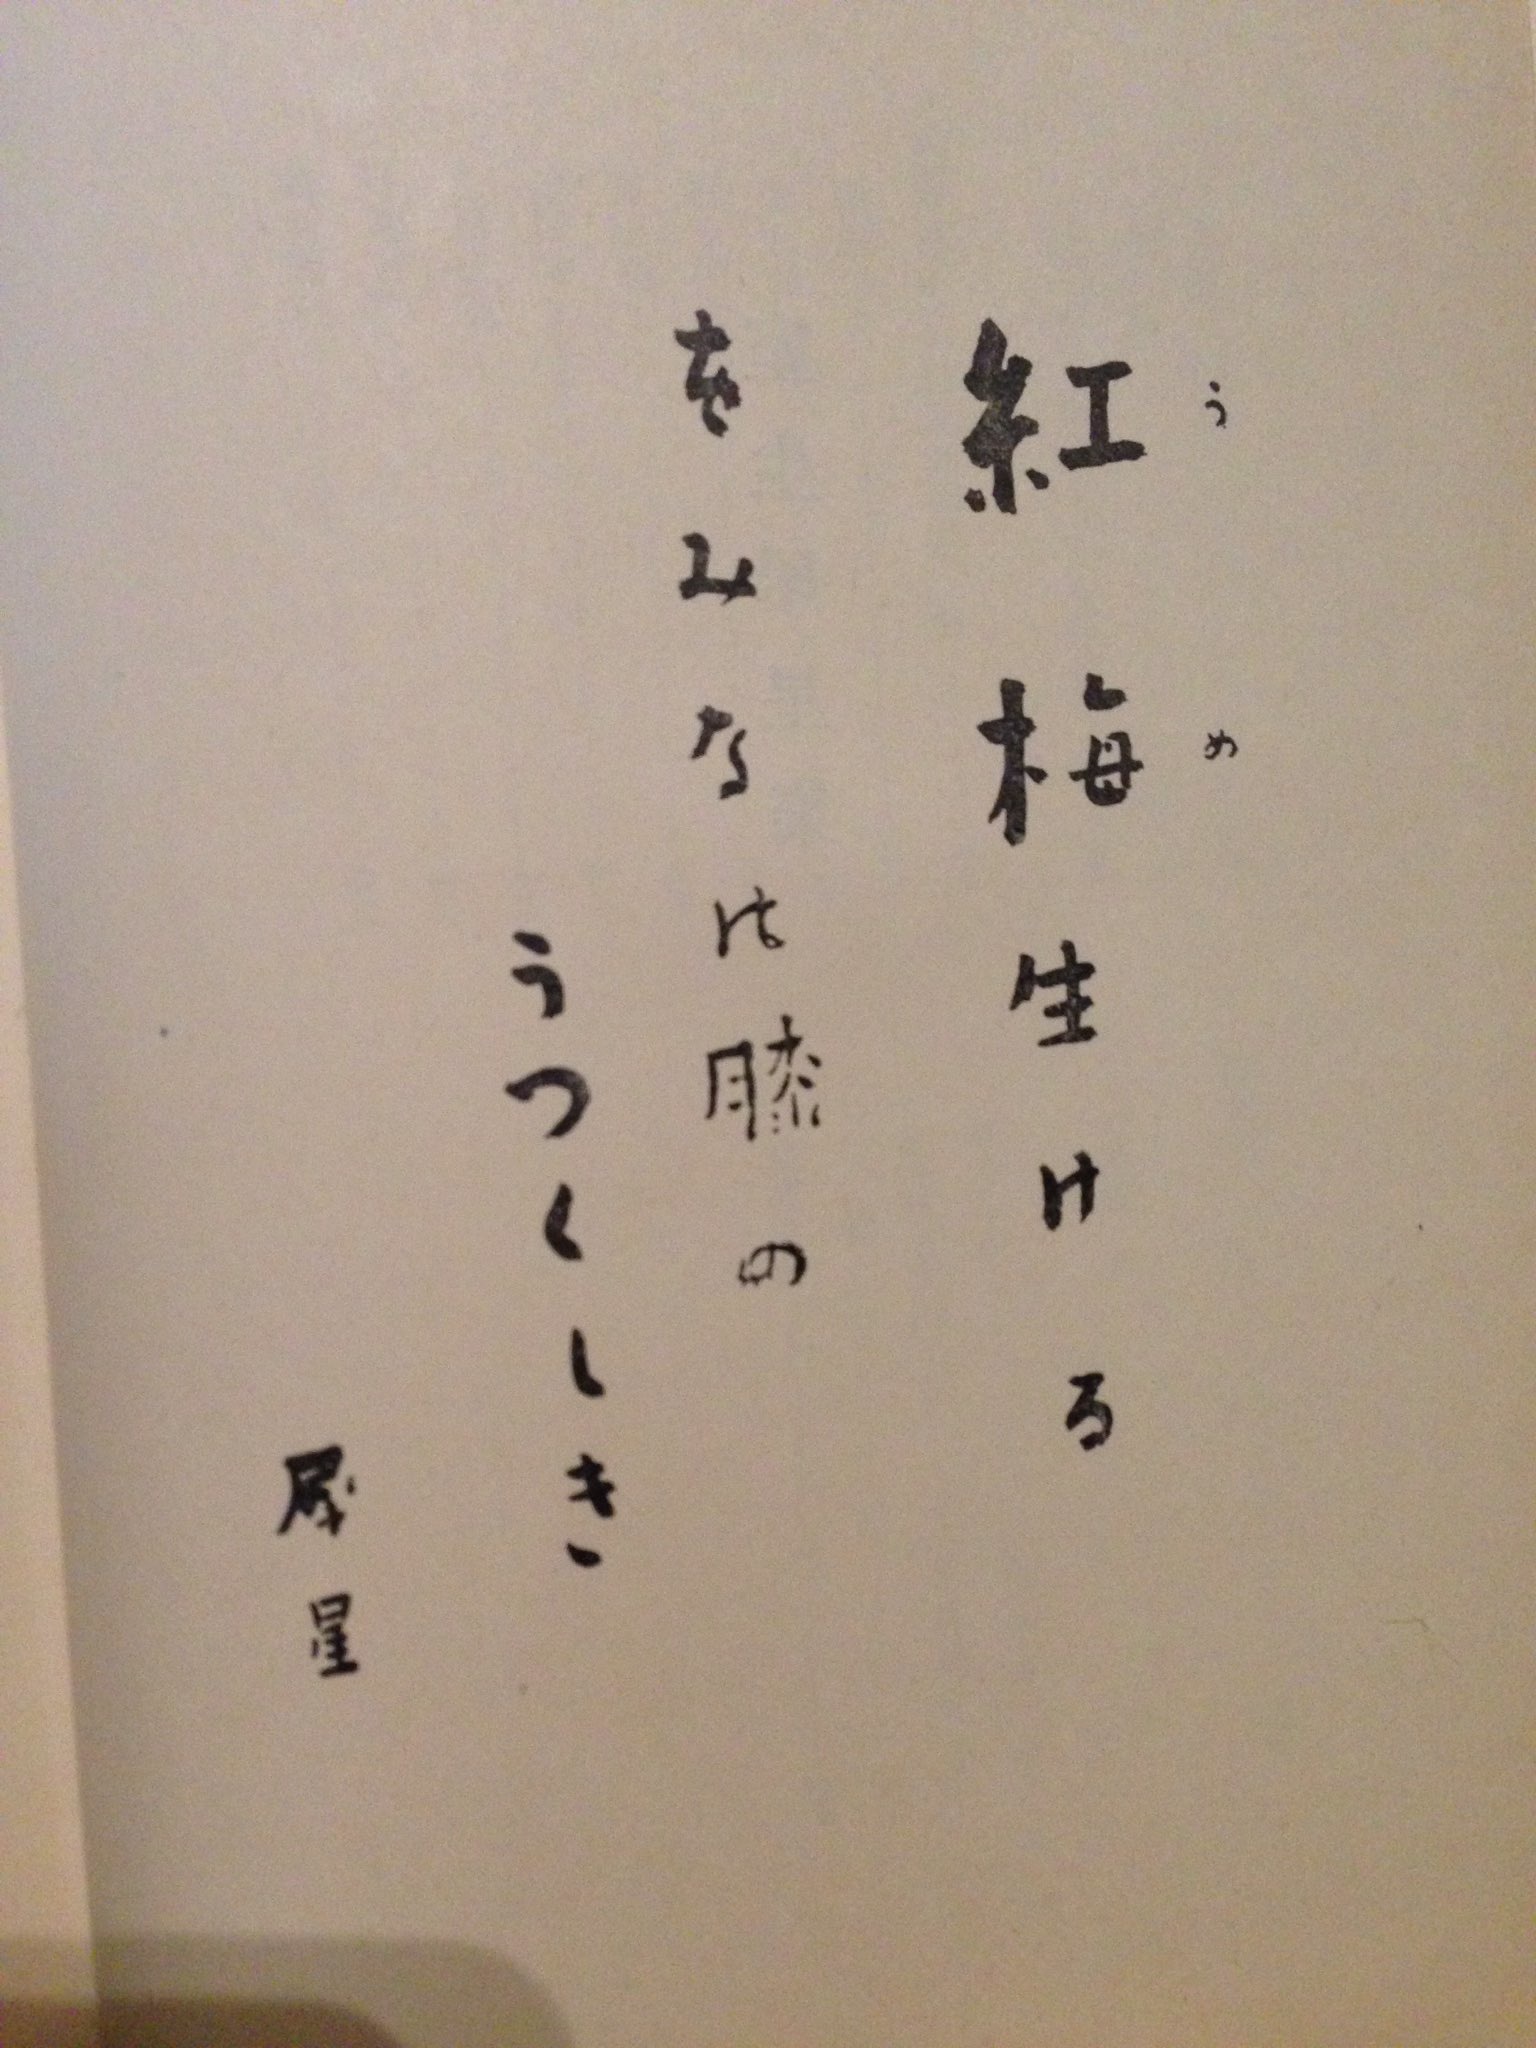 うめ
紅梅生ける
をみなは膝の
うつくしき
犀星